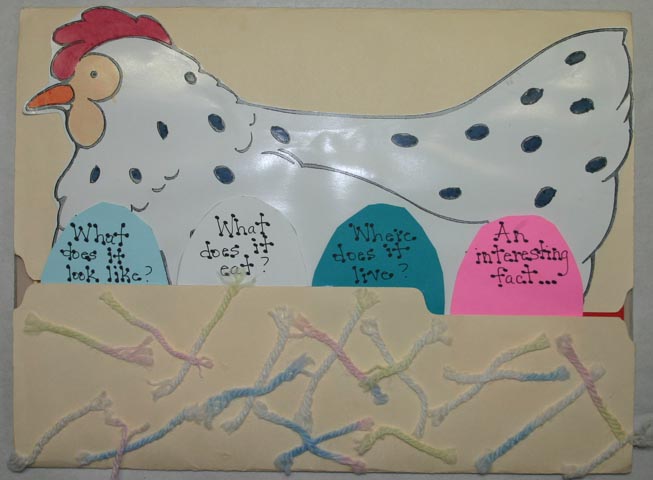 What
does it
look like?
What
does it
eat?
Where
does it
live?
An
interesting
fact...